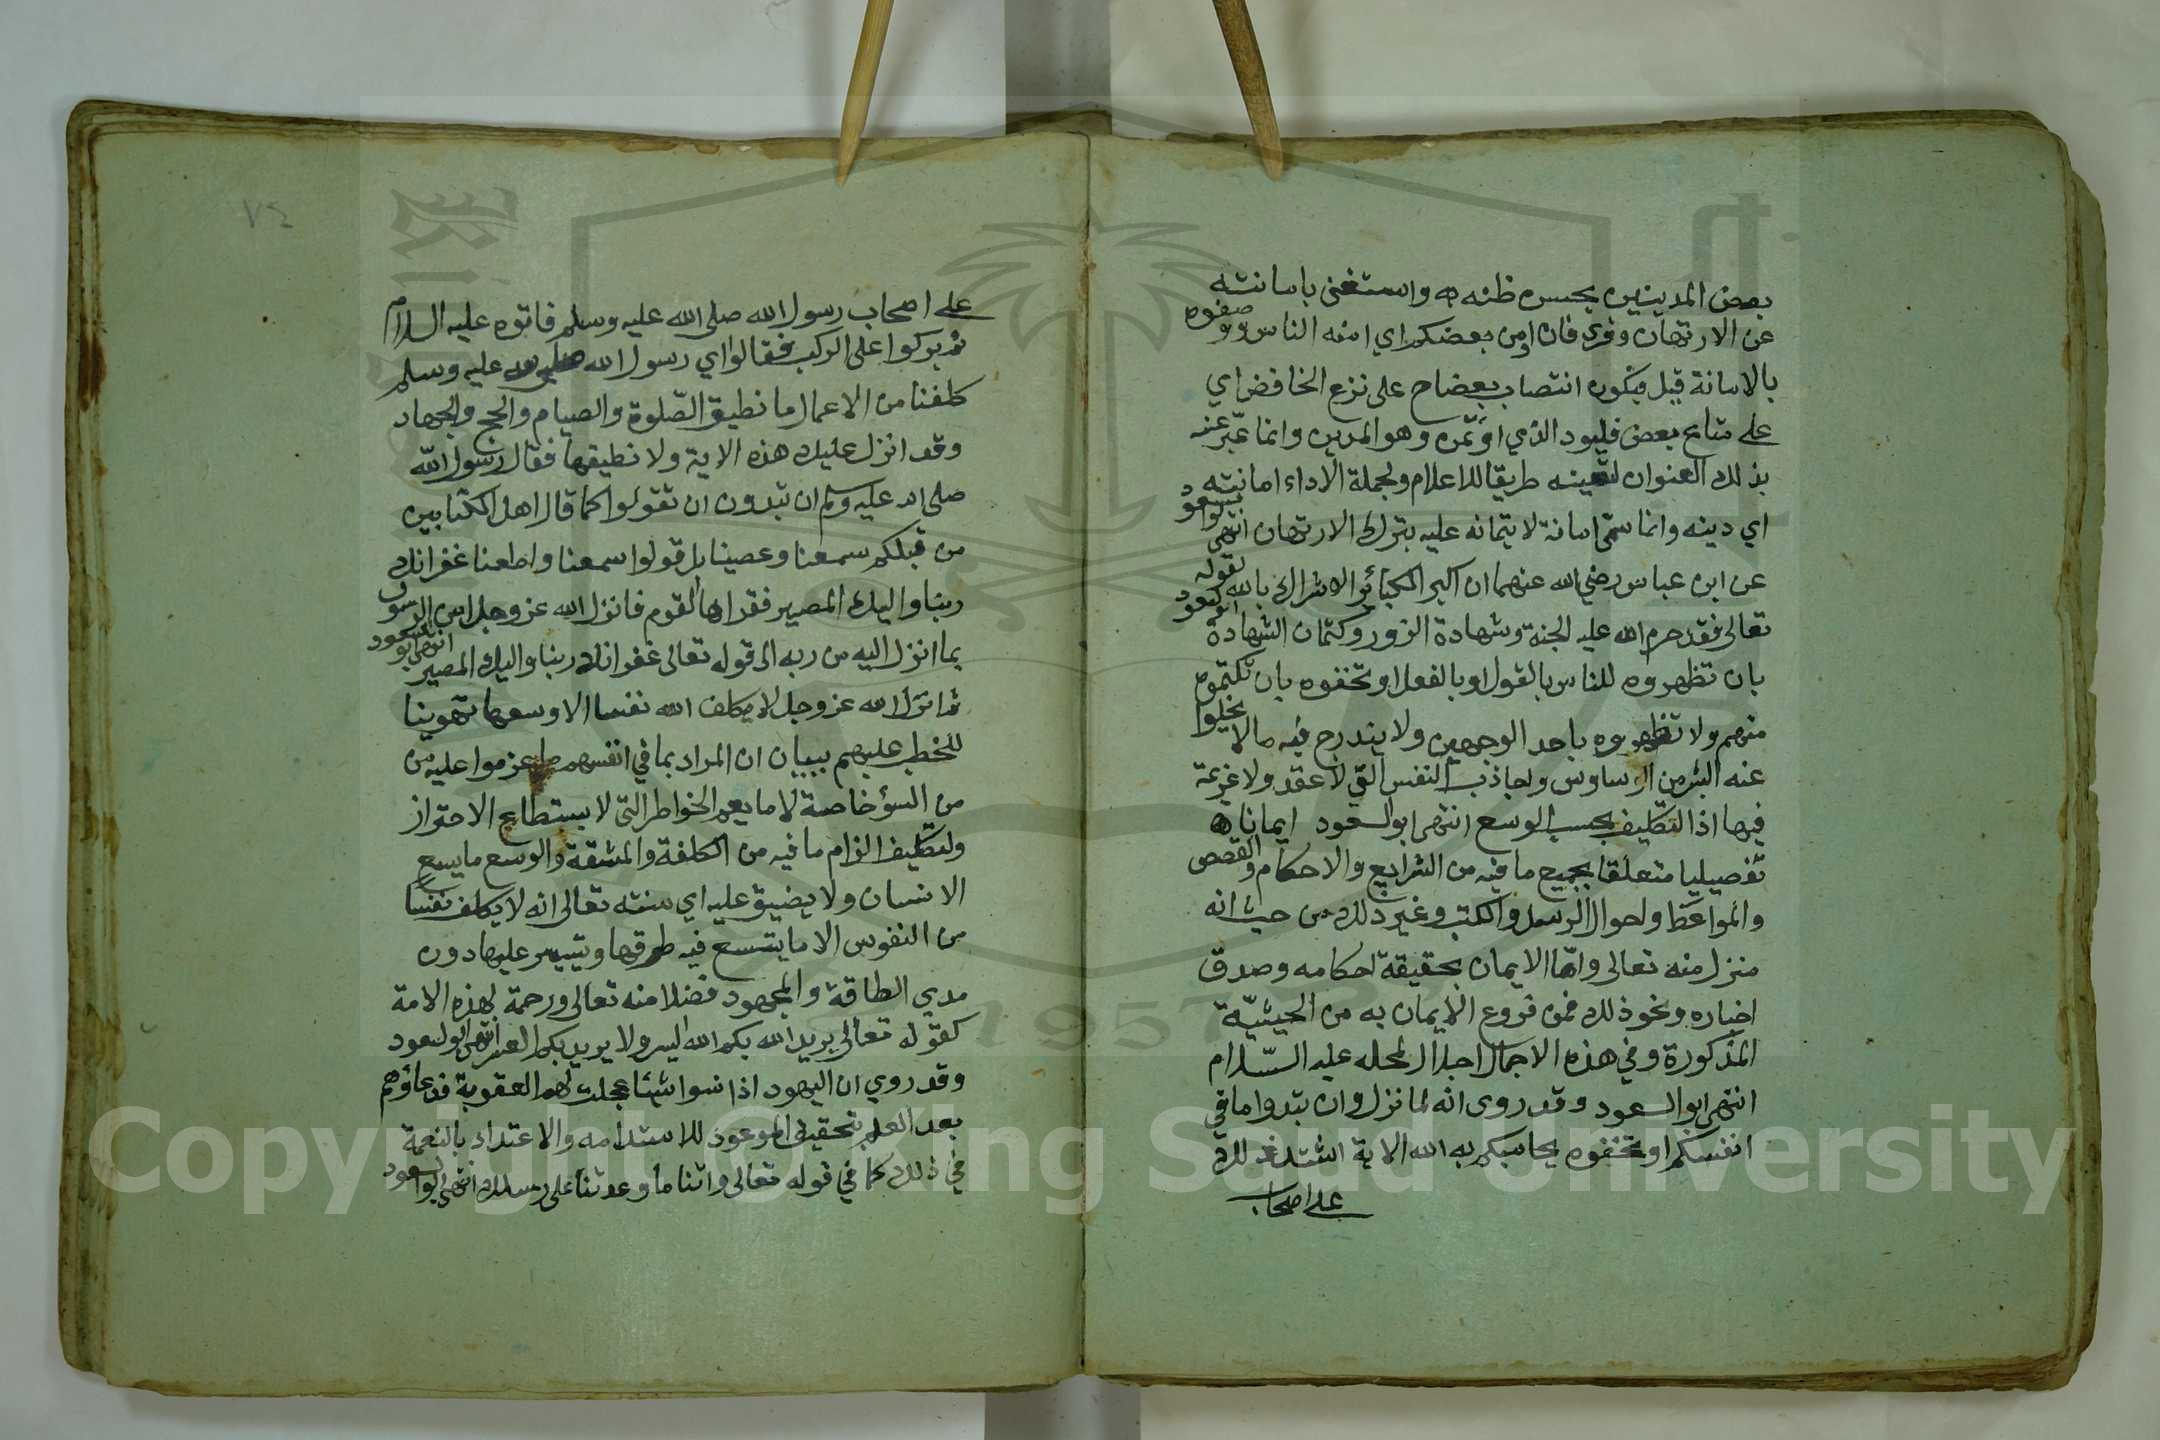 بعض المدينين بحسن ظنه به واستغنى بامانته
عن الارتهان وقرئ فان اومن بعضكم اي امنه الناس ووصفوه
بالامانة قيل فيكون انتصاب بعضا ح على نزع الخافض اي
على متاع بعض فليؤد الذي اؤتمن وهو المدين وانما عبّر عنه
بذلك العنوان لتعينه طريقا للاعلام ولجملة الاداء امانته
اي دينه وانما سمّى امانة لايتمانه عليه بترك الارتهان انتهى ابوالسعود
عن ابن عباس رضي الله عنهما ان اكبر الكبائر الاشراك بالله لقوله
تعالى فقد حرم الله عليه الجنة وشهادة الزور وكتمان الشهادة ابوالسعود
بان تظهروه للناس بالقول او بالفعل او تخفوه بان تكتموه
منهم ولا تظهروه باحد الوجهين ولا يندرج فيه مالا يخلوا
عنه البشر من الوساوس واحاذيث النفس التي لا عقد ولا عزيمة
فيها اذ التكليف بحسب الوسع انتهى ابوالسعود ايمانا
تفصيليا متعلقا بجميع ما فيه من الشرايع والاحكام والقصص
والمواعظ واحوال الرسل والكتب وغير ذلك من حيث انه
منزل منه تعالى وامّا الايمان بحقيقة احكامه وصدق
اخباره ونحو ذلك فمن فروع الايمان به من الحيثيّة
المذكورة وفي هذه الاجمال اجلال لمحله عليه السّلام
انتهى ابوالسعود وقد روى انه لما نزل وان تبدوا ما في
انفسكم او تخفوه يحاسبكم به الله الاية اشتد ذلك
على اصحاب
٧٤
على اصحاب رسول الله صلى الله عليه وسلم فاتوه عليه السلام
ثم بركوا على الركب فقالوا اي رسول الله صلى الله عليه وسلم
كلفنا من الاعمال ما نطيق الصّلوة والصيام والحج والجهاد
وقد انزل عليك هذه الاية ولا نطيقها فقال رسول الله
صلى الله عليه وسلم ان تبدون ان تقولوا كما قال اهل الكتابين
من قبلكم سمعنا وعصينا بل قولوا سمعنا واطعنا غفرانك
ربنا واليك المصير فقراها القوم فانزل الله عز وجل امن الرسول
بما انزل اليه من ربه الى قوله تعالى غفرانك ربنا واليك المصير انتهى ابوالسعود
ثم انزل الله عز وجل لا يكلف الله نفسا الا وسعها تهوينا
للخطب عليهم ببيان ان المراد بما في انفسهم ما عزموا عليه من
من السؤ خاصة لا ما يعم الخواطر التي لا يستطاع الاحتراز
ولتكليف الزام ما فيه من الكلفة والمشقة والوسع ما يسع
الانسان ولا يضيق عليه اي سنته تعالى انه لا يكلف نفسا
من النفوس الا ما يتسع فيه طوقها ويتيسر عليها دون
مدي الطاقة والمجهود فضلا منه تعالى ورحمة لهذه الامة
كقوله تعالى يريد الله بكم الله اليسر ولا يريد بكم العسر انتهى ابوالسعود
وقد روي ان اليهود اذا نسوا شئا عجلت لهم العقوبة فدعاؤهم
بعد العلم بتحقيق الموعود للاستدامه والاعتداد بالنعمة
في ذلك كما في قوله تعالى واتنا ما وعدتنا على رسلك انتهى ابوالسعود